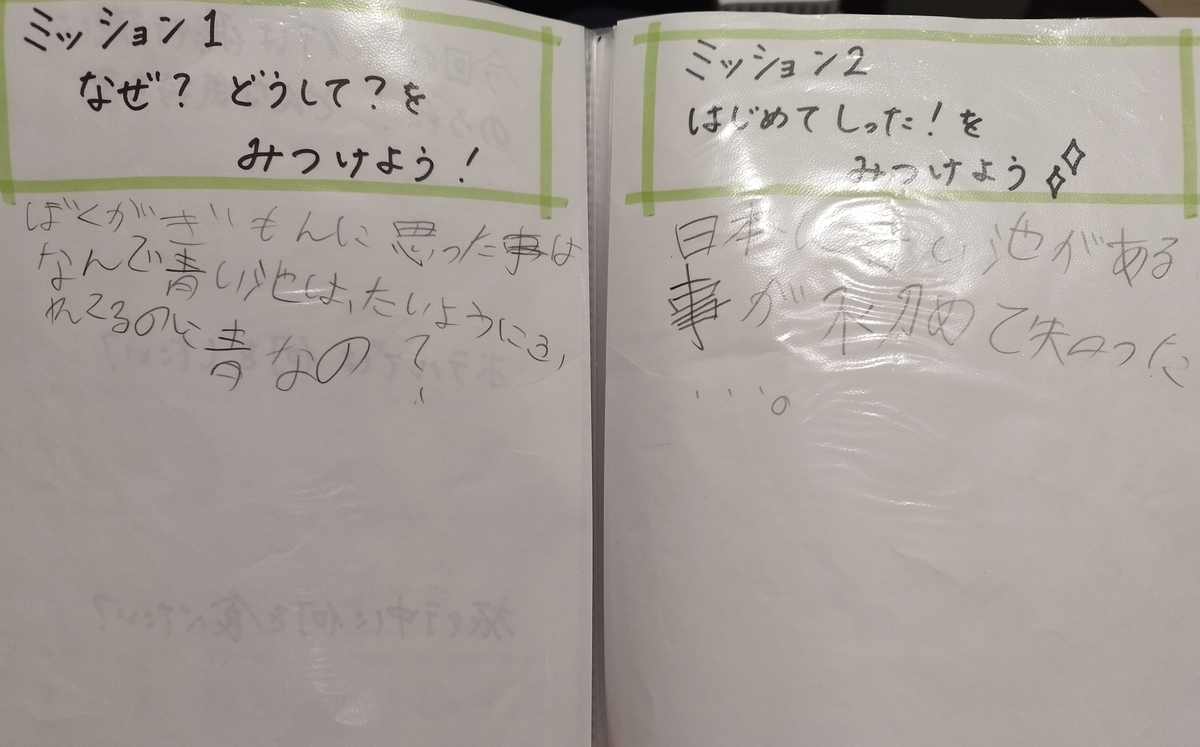 ミッション1
なぜ？ どうして？を
みつけよう！
ぼくがぎもんに思った事は
なんで青い池は、たいように
れてるのに青なの？
ミッション2
はじめてしった！を
みつけよう
日本に青い池がある
事が初めて知った
・・・。
旅行中に何を食べたい？